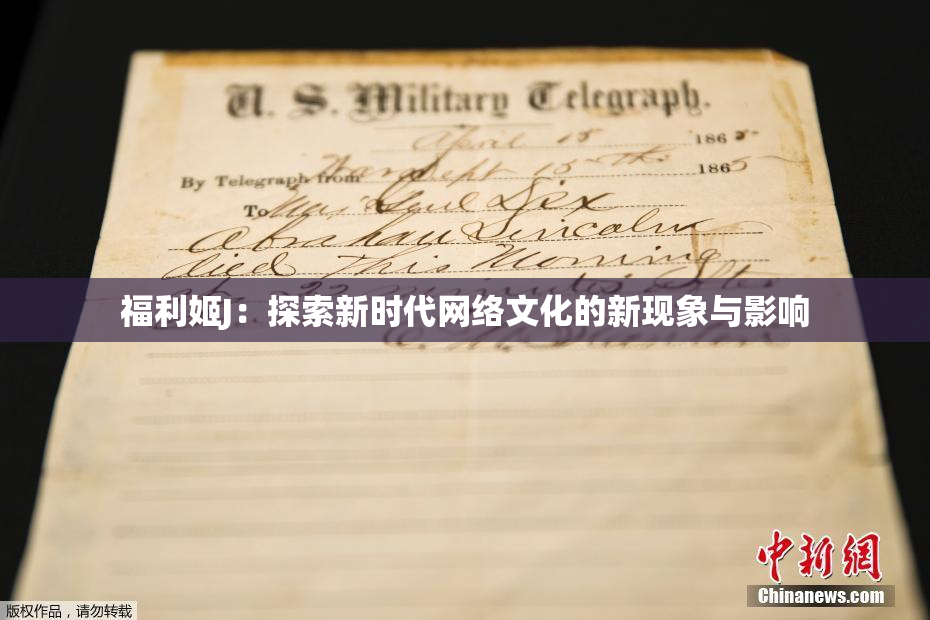 U. S. Military Telegraph.
April 15 1865
By Telegraph from War Dept 15th 1865
To Maj Genl Dix
Abraham Lincoln
died This Morning
at 22 minutes after
福利姬J：探索新时代网络文化的新现象与影响
E. M. Stanton
中新网
Chinanews.com
版权作品，请勿转载